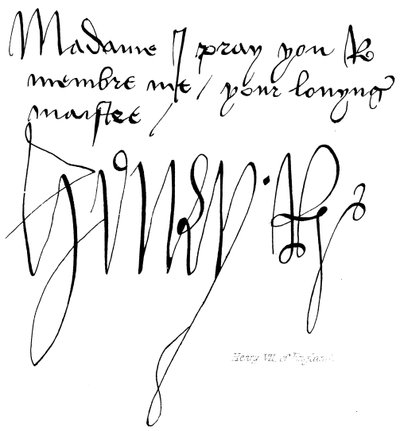 Madame I pray you Re
membre me / your lovyng
maistre /
Henry · R
Henry VII. of England.